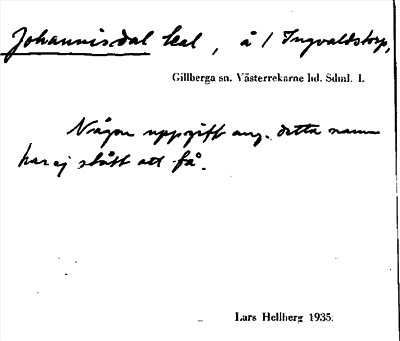 Johannisdal kal, å/Ingvaldstorp,
Gillberga sn. Västerrekarne hd. Sdml. l.
Någon uppgift ang. detta namn
har ej stått att få.
Lars Hellberg 1935.